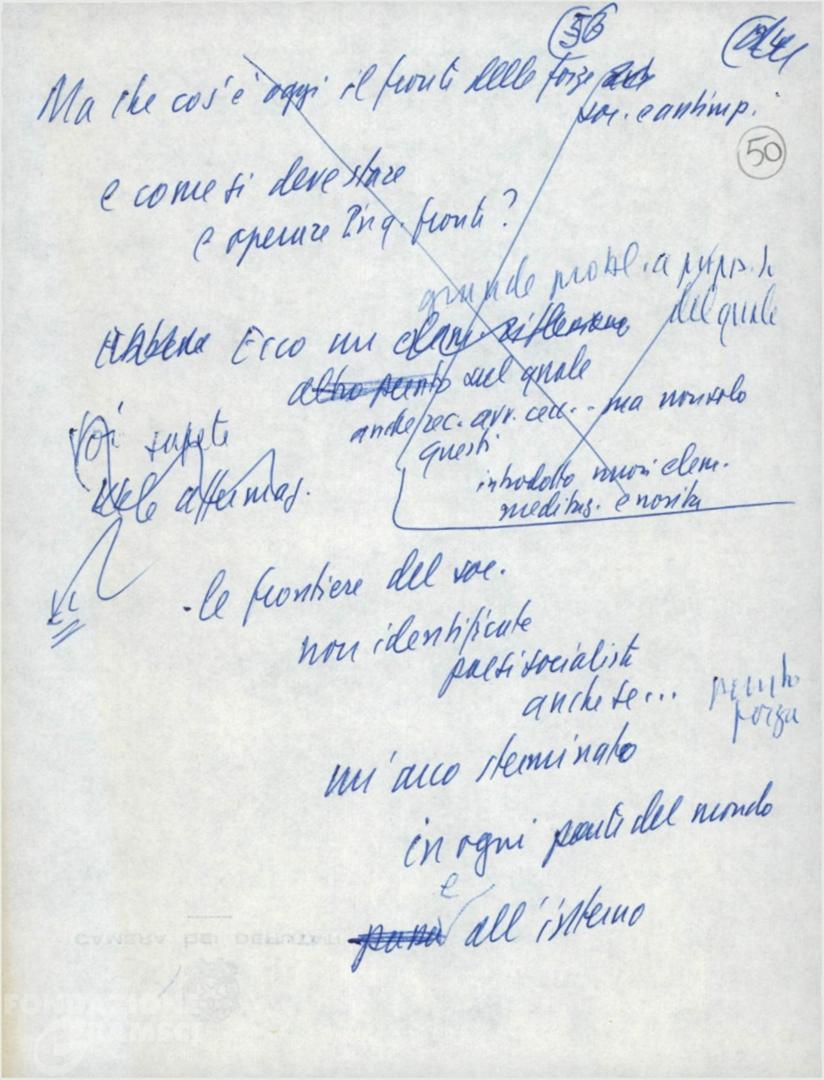 56
50
Ma che cos'è oggi il fronte delle forze
soc. e antimp.
e come si deve stare
e operare in q. fronte?
grande probl. a propos.
del quale
Ecco un
altro punto sul quale
anche rec. avv. ecc. .. ma non solo
questi
introdotto nuovi elem.
meditaz. e novità
Voi sapete
affermaz.
- le frontiere del soc.
non identificate
paesi socialisti
anche se...
punto
forza
un'arco sterminato
in ogni parte del mondo
e
all'interno
CAMERA DEI DEPUTATI
FONDAZIONE
GRAMSCI